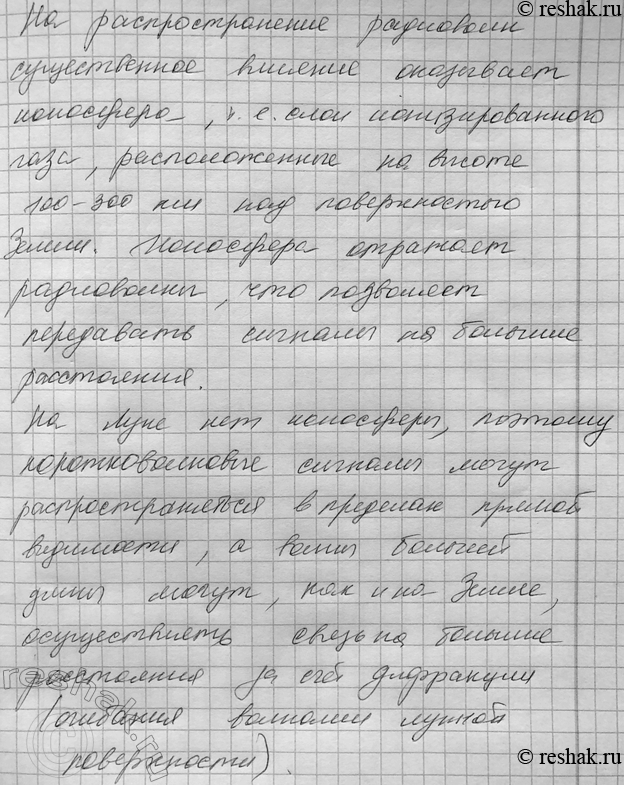 © reshak.ru
На распространение радиоволн
существенное влияние оказывает
ионосфера, т. е. слои ионизированного
газа, расположенные на высоте
100-300 км над поверхностью
Земли. Ионосфера отражает
радиоволны, что позволяет
передавать сигналы на большие
расстояния.
На Луне нет ионосферы, поэтому
коротковолновые сигналы могут
распространяться в пределах прямой
видимости, а волны большей
длины могут, как и на Земле,
осуществлять связь на большие
расстояния за счёт дифракции
(огибания волнами лунной
поверхности).
reshak.ru
© reshak.ru